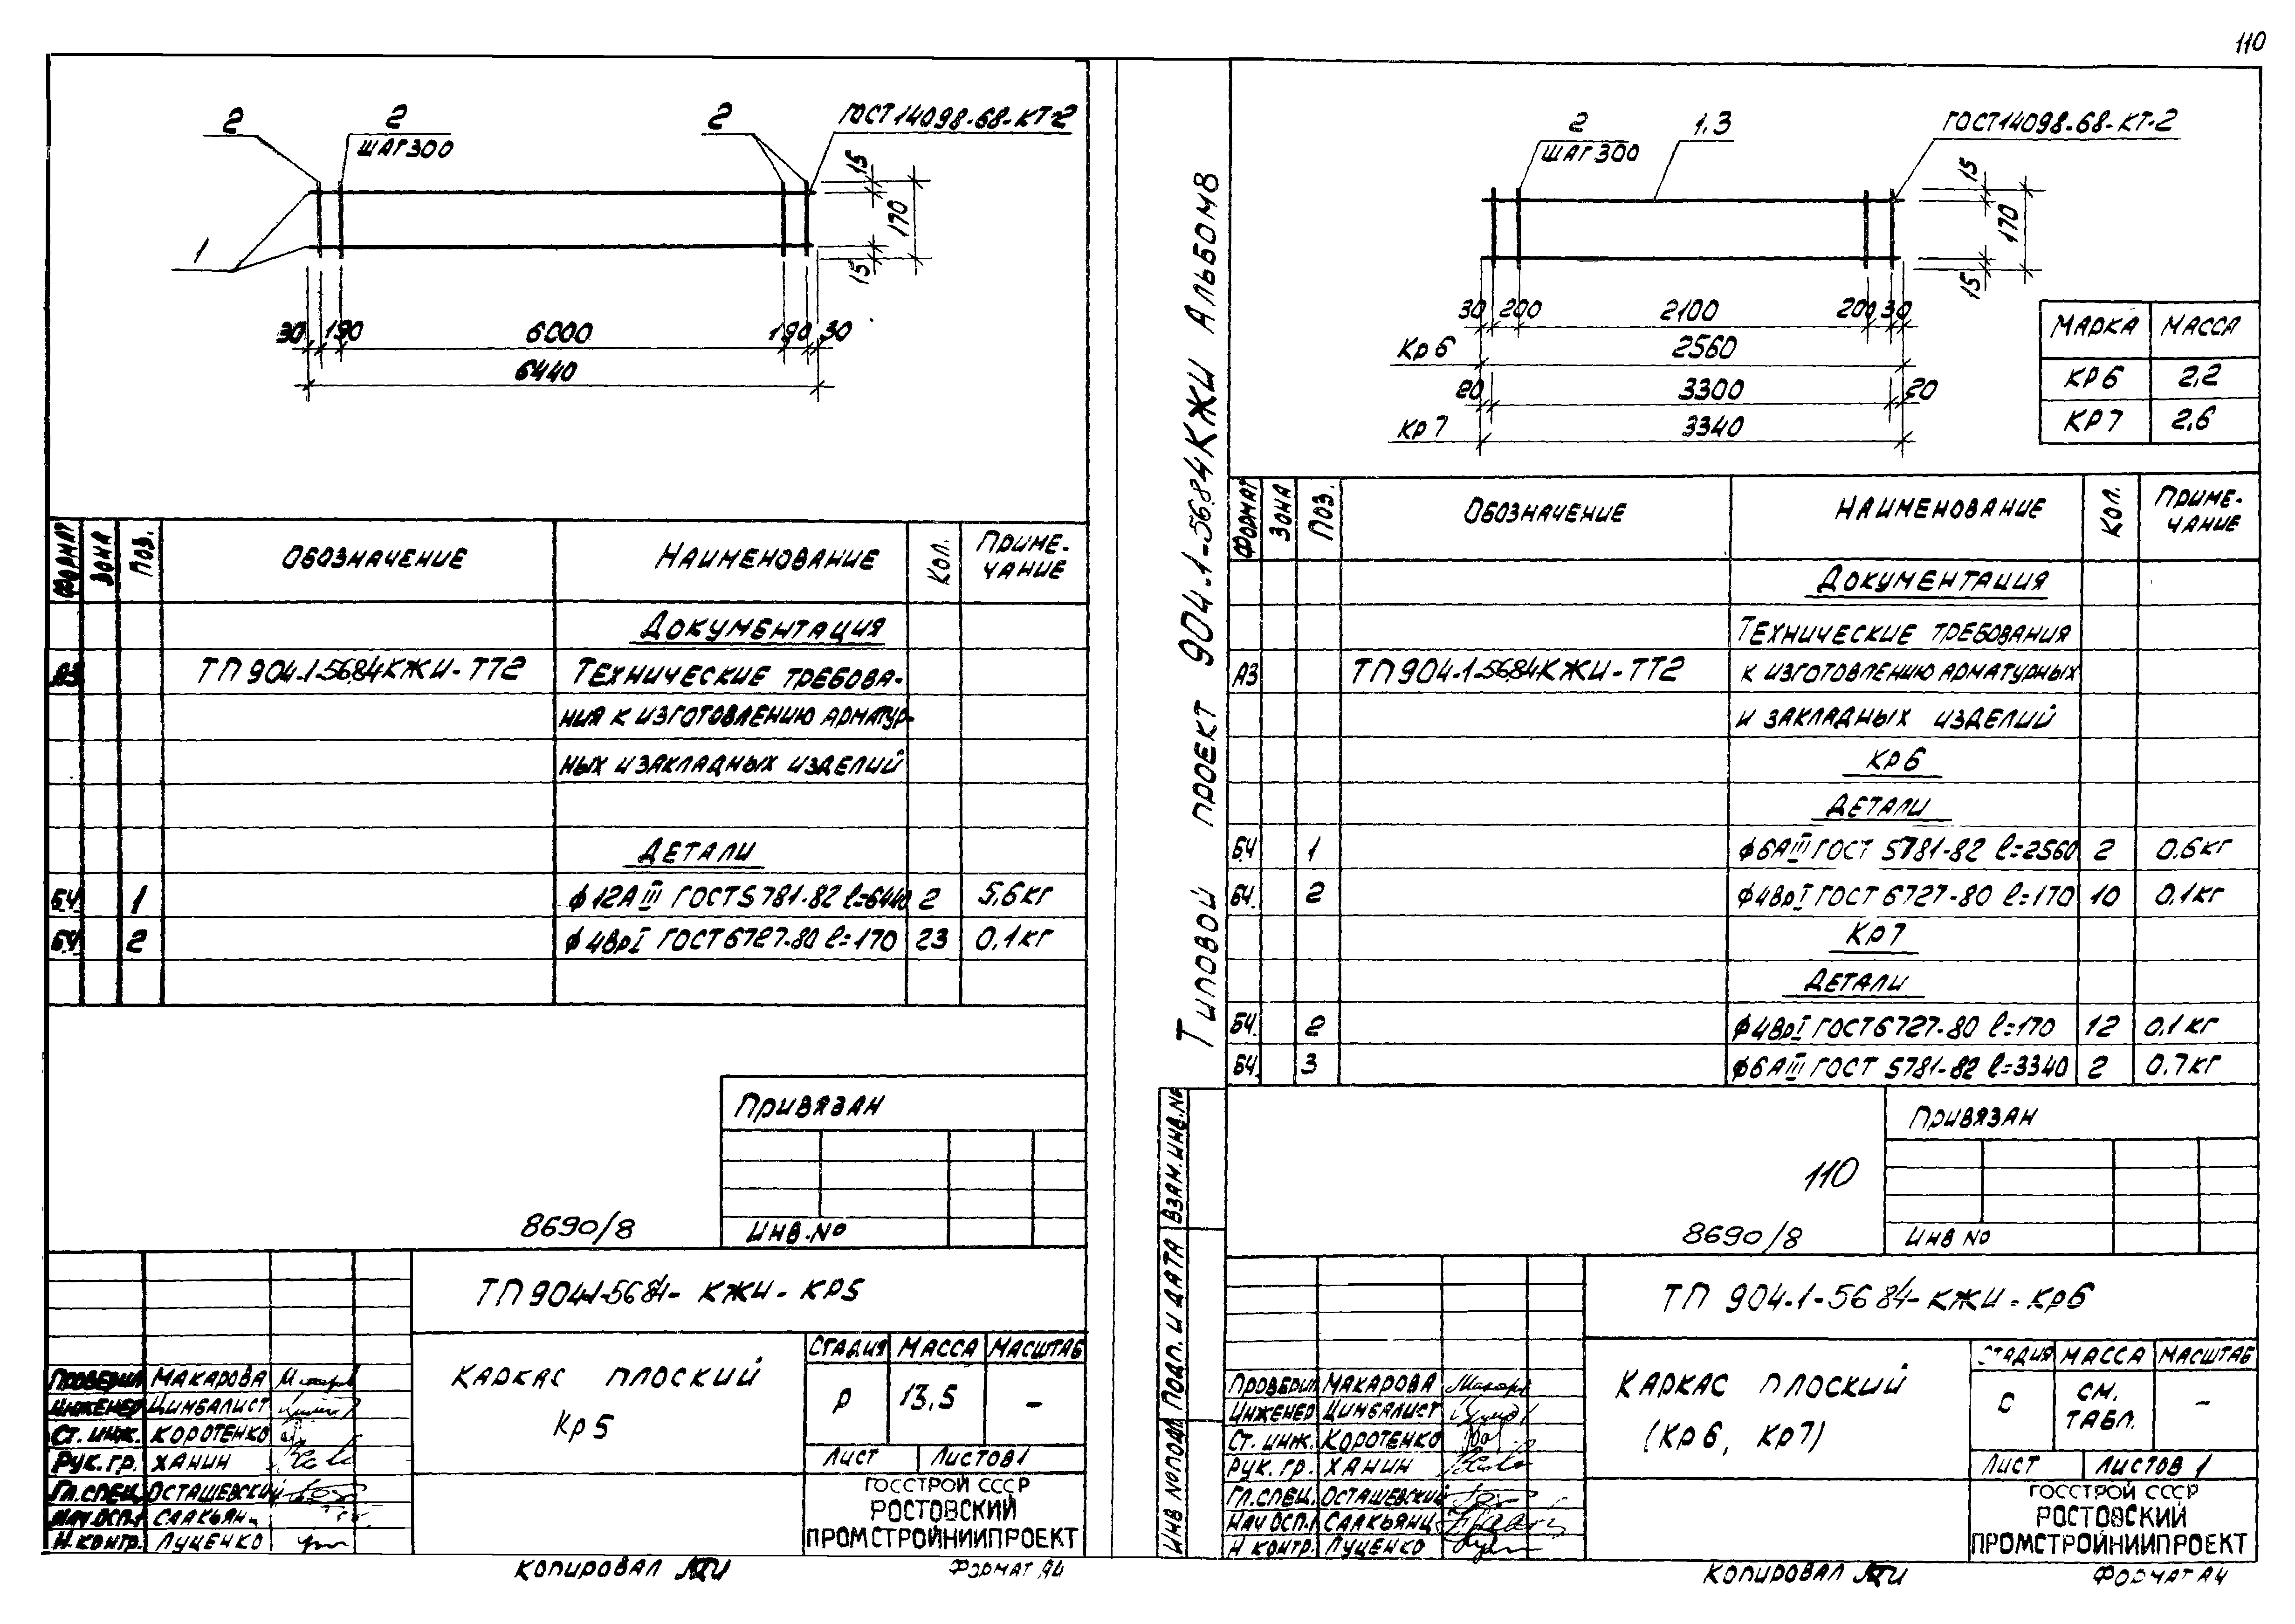 110
2
2
ШАГ 300
2
ГОСТ 14098-68-КТ-2
1
15
170
15
30
190
6000
190
30
6440
ФОРМАТ
ЗОНА
ПОЗ.
ОБОЗНАЧЕНИЕ
НАИМЕНОВАНИЕ
КОЛ.
ПРИМЕ-
ЧАНИЕ
ДОКУМЕНТАЦИЯ
А3
ТП 904-1-56.84 КЖИ-ТТ2
ТЕХНИЧЕСКИЕ ТРЕБОВА-
НИЯ К ИЗГОТОВЛЕНИЮ АРМАТУР-
НЫХ И ЗАКЛАДНЫХ ИЗДЕЛИЙ
ДЕТАЛИ
БЧ. 1 ϕ12АIII ГОСТ 5781-82 ℓ=6440 2 5,6кг
БЧ. 2 ϕ4ВрI ГОСТ 6727-80 ℓ=170 23 0.1кг
ПРИВЯЗАН
8690/8
ИНВ.№
ТП 904-1-5684- КЖИ- КР5
КАРКАС ПЛОСКИЙ
Кр5
СТАДИЯ МАССА МАСШТАБ
Р 13,5 –
ЛИСТ ЛИСТОВ 1
ГОССТРОЙ СССР
РОСТОВСКИЙ
ПРОМСТРОЙНИИПРОЕКТ
ПРОВЕРИЛ МАКАРОВА
ИНЖЕНЕР ЦИМБАЛИСТ
СТ. ИНЖ. КОРОТЕНКО
РУК. ГР. ХАНИН
ГЛ.СПЕЦ. ОСТАШЕВСКИЙ
НАЧ.ОСП-1 СААКЬЯНЦ
Н.КОНТР. ЛУЦЕНКО
КОПИРОВАЛ
ФОРМАТ А4
ТИПОВОЙ ПРОЕКТ 904-1-56.84 КЖИ АЛЬБОМ 8
2
ШАГ 300
1,3
ГОСТ 14098-68-КТ-2
15
170
15
30 200 2100 200 30
Кр6 2560
20 3300 20
Кр7 3340
МАРКА МАССА
КР6 2,2
КР7 2,6
ФОРМАТ
ЗОНА
ПОЗ.
ОБОЗНАЧЕНИЕ
НАИМЕНОВАНИЕ
КОЛ.
ПРИМЕ-
ЧАНИЕ
ДОКУМЕНТАЦИЯ
ТЕХНИЧЕСКИЕ ТРЕБОВАНИЯ
А3 ТП 904-1-56.84 КЖИ-ТТ2 К ИЗГОТОВЛЕНИЮ АРМАТУРНЫХ
И ЗАКЛАДНЫХ ИЗДЕЛИЙ
Кр6
ДЕТАЛИ
БЧ 1 ϕ6АIII ГОСТ 5781-82 ℓ=2560 2 0.6кг
БЧ. 2 ϕ4ВрI ГОСТ 6727-80 ℓ=170 10 0.1кг
Кр7
ДЕТАЛИ
БЧ. 2 ϕ4ВрI ГОСТ 6727-80 ℓ=170 12 0.1кг
БЧ. 3 ϕ6АIII ГОСТ 5781-82 ℓ=3340 2 0.7кг
ПРИВЯЗАН
110
8690/8
ИНВ №
ВЗАМ.ИНВ.№
ПОДП. И ДАТА
ИНВ №ПОДЛ
ТП 904-1-5684- КЖИ- КР6
КАРКАС ПЛОСКИЙ
(Кр6, Кр7)
СТАДИЯ МАССА МАСШТАБ
С СМ. ТАБЛ. –
ЛИСТ ЛИСТОВ 1
ГОССТРОЙ СССР
РОСТОВСКИЙ
ПРОМСТРОЙНИИПРОЕКТ
ПРОВЕРИЛ МАКАРОВА
ИНЖЕНЕР ЦИМБАЛИСТ
СТ. ИНЖ. КОРОТЕНКО
РУК. ГР. ХАНИН
ГЛ.СПЕЦ. ОСТАШЕВСКИЙ
НАЧ ОСП-1 СААКЬЯНЦ
Н КОНТР. ЛУЦЕНКО
КОПИРОВАЛ
ФОРМАТ А4